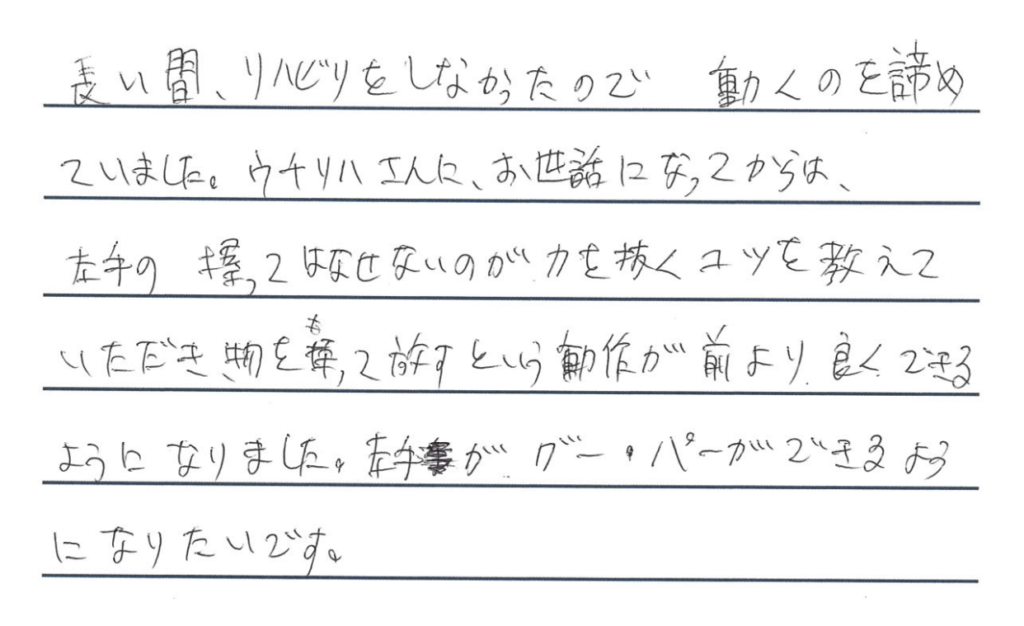 長い間、リハビリをしなかったので 動くのを諦め
ていました。ウチリハさんに、お世話になってからは、
左手の 握ってはなせないのが力を抜くコツを教えて
いただき物を握って放すという動作が前より良くできる
ようになりました。左手がグー・パーができるよう
になりたいです。